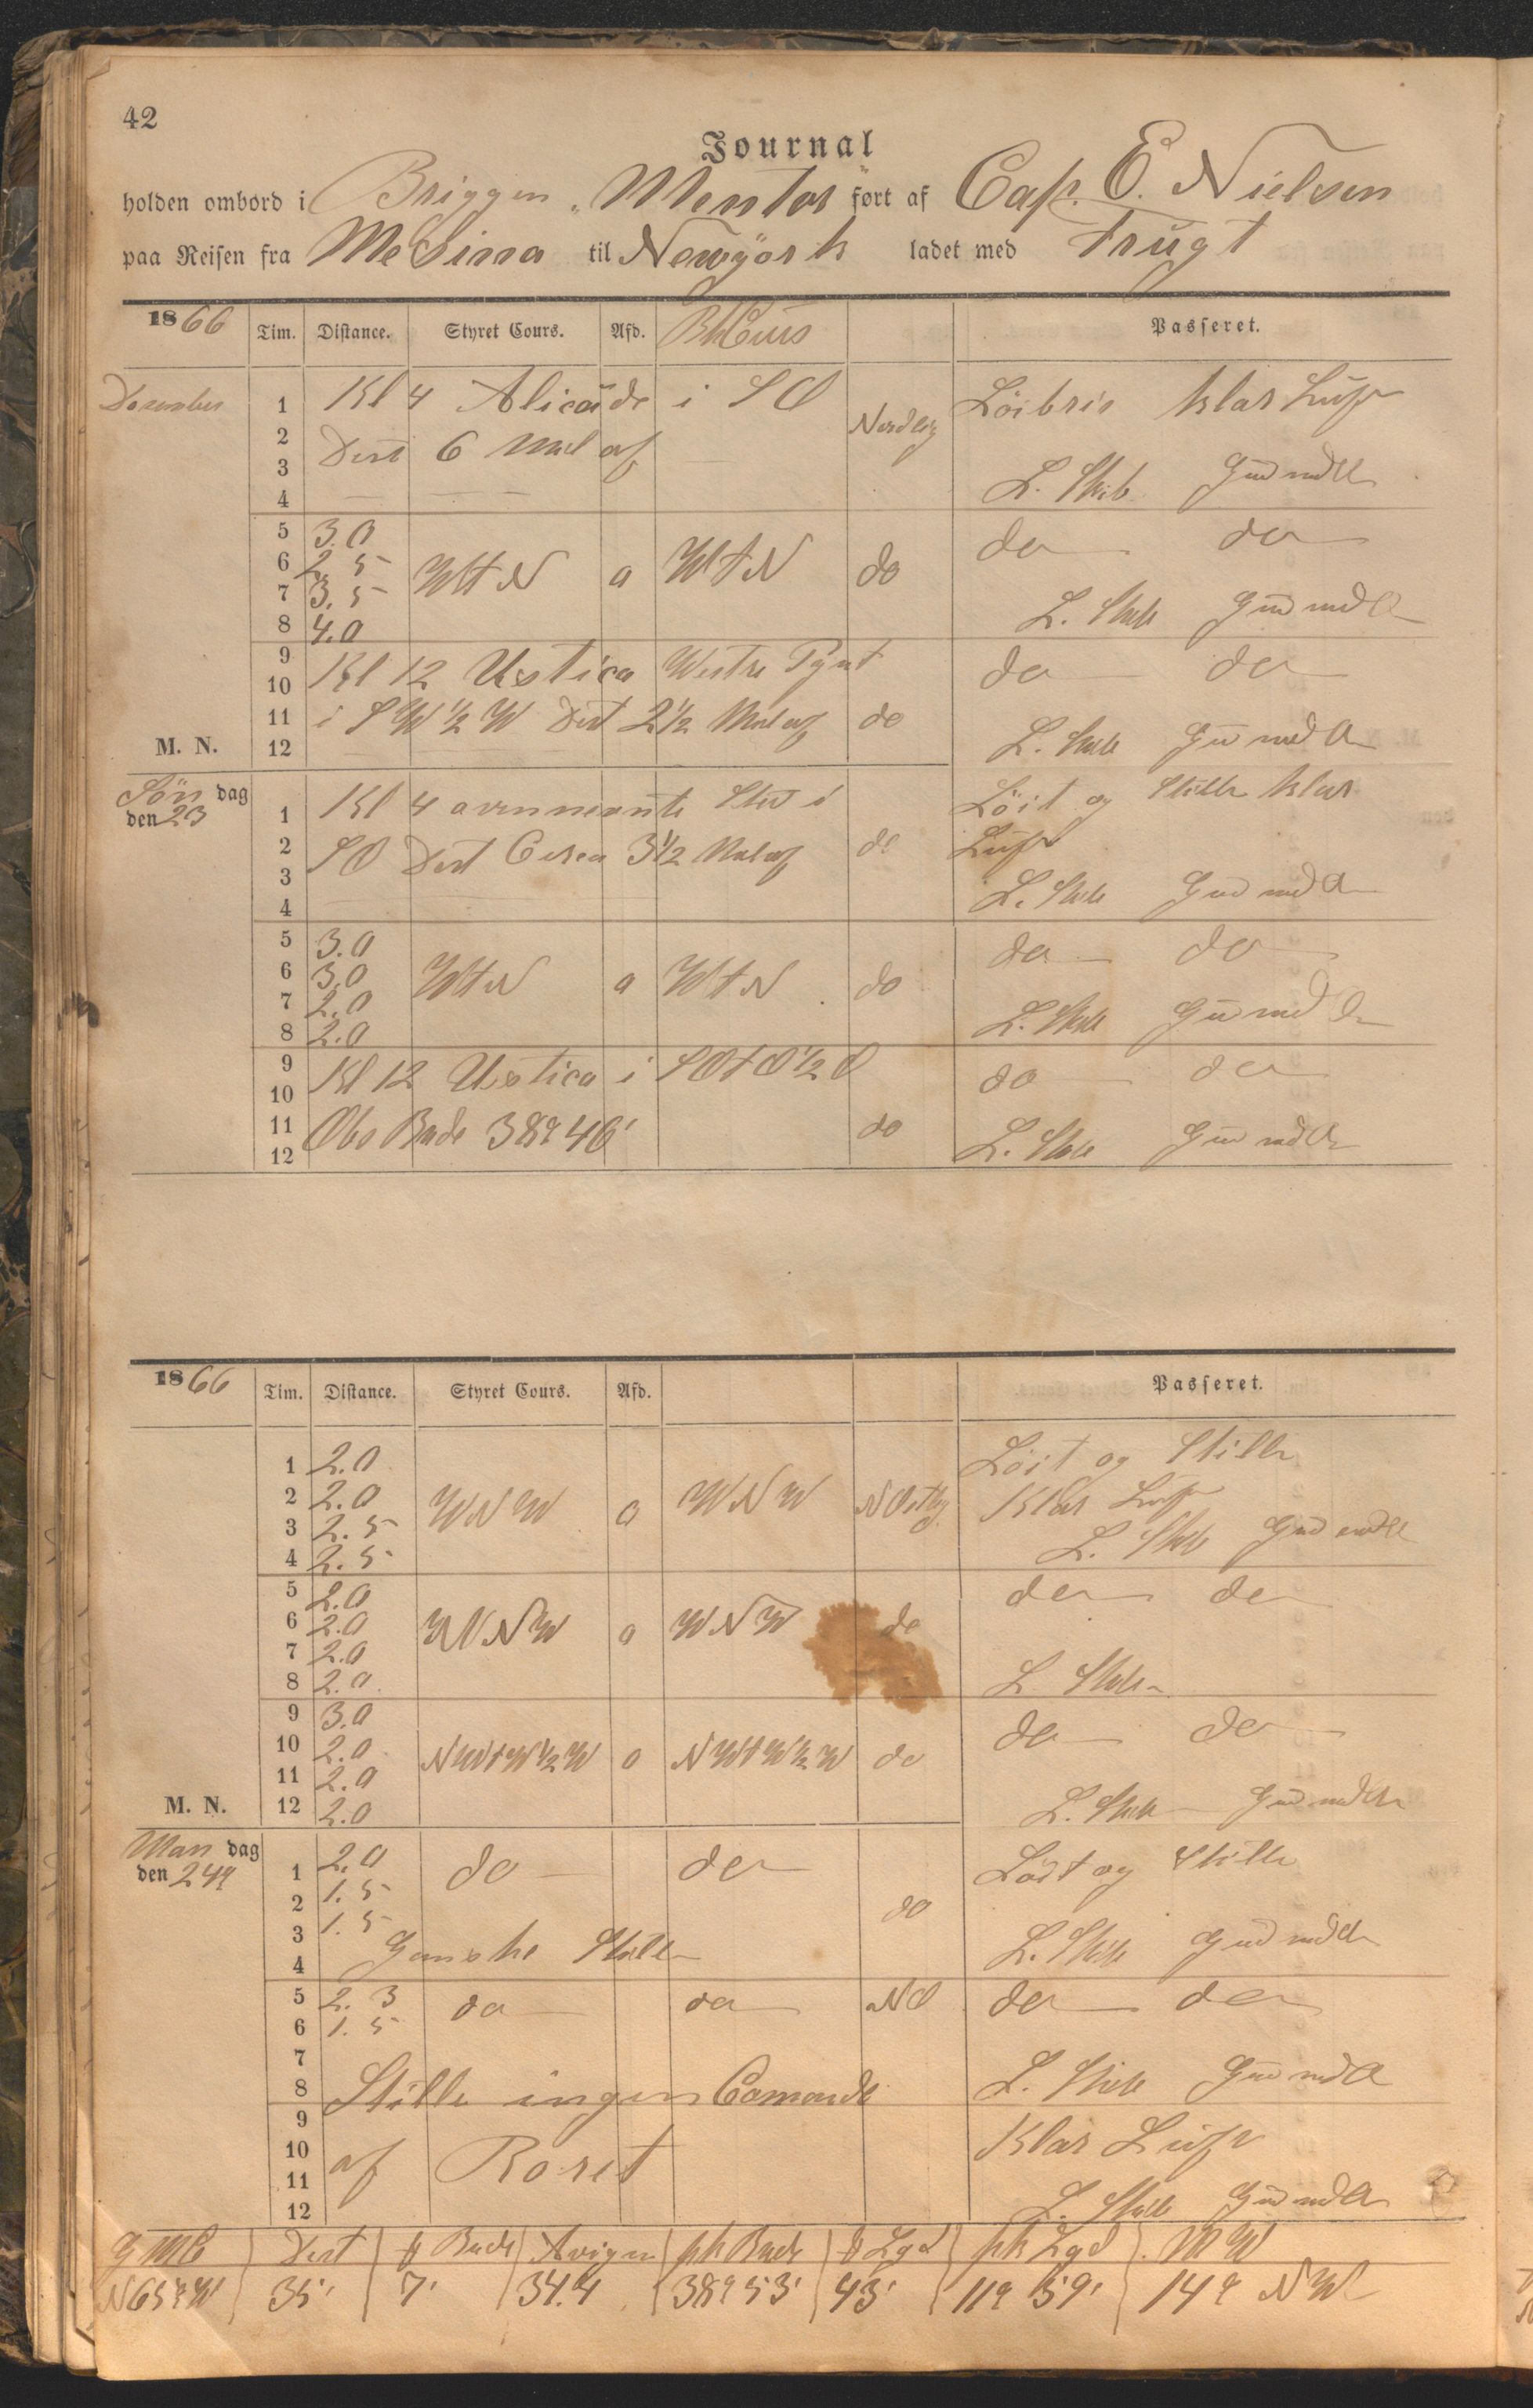 42
Journal
holden ombord i Briggen „Mentor" ført af Cap. E. Nielsen
paa Reisen fra Mesinna til Newyörk ladet med Frugt
1866 Tim. Distance. Styret Cours. Afd. Passeret.
December
1 Kl 4 Alicüde i SO Nordlig Löibris klar Lüft
2 Dist 6 Mil af
3 L. Skib Gud med Os
4
5 3.0 do do
6 2.5 WtN 0 WtN do
7 3.5 L. Skib Gud med Os
8 4.0
9 Kl 12 Ustica Westre Pynt do do
10
11 i SW ½ W Dist 2½ Mil af do
M. N. 12 L. Skib Gud med Os
Söndag
den 23
1 Kl 4 ovennevnte Sted i Löit og Stille klar
2 SO Dist Cirea 3½ Mil af do Lüft
3 L. Skib Gud med Os
4
5 3.0 do do
6 3.0 WtN 0 WtN do
7 2.0 L. Skib Gud med Os
8 2.0
9 Kl 12 Ustica i SOtO½O do do
10
11 Obs Brede 38° 46' do
12 L. Skib Gud med Os
1866 Tim. Distance. Styret Cours. Afd. Passeret.
1 2.0 Löit og Stille
2 2.0 WNW 0 WNW NOstlig Klar Lüft
3 2.5 L. Skib Gud med Os
4 2.5
5 2.0 do do
6 2.0 WNW 0 WNW do
7 2.0
8 2.0 L Skib
9 3.0 do do
10 2.0 NWtW½W 0 NWtW½W do
11 2.0
M. N. 12 2.0 L. Skib Gud med Os
Mandag
den 24de
1 2.0 do do Löit og Stille
2 1.5 do
3 1.5 L. Skib Gud med Os
4 Ganske Stille
5 2.3 do do NO do do
6 1.5
7
8 Stille ingen Comande L. Skib Gud med Os
9
10 af Roret Klar Lüft
11
12 L. Skib Gud med Os
Dist Brede Avigen Brede Lgd Lgd MW
N65°W 35' 7' 34.4 38° 53' 43' 11° 59' 14° NW